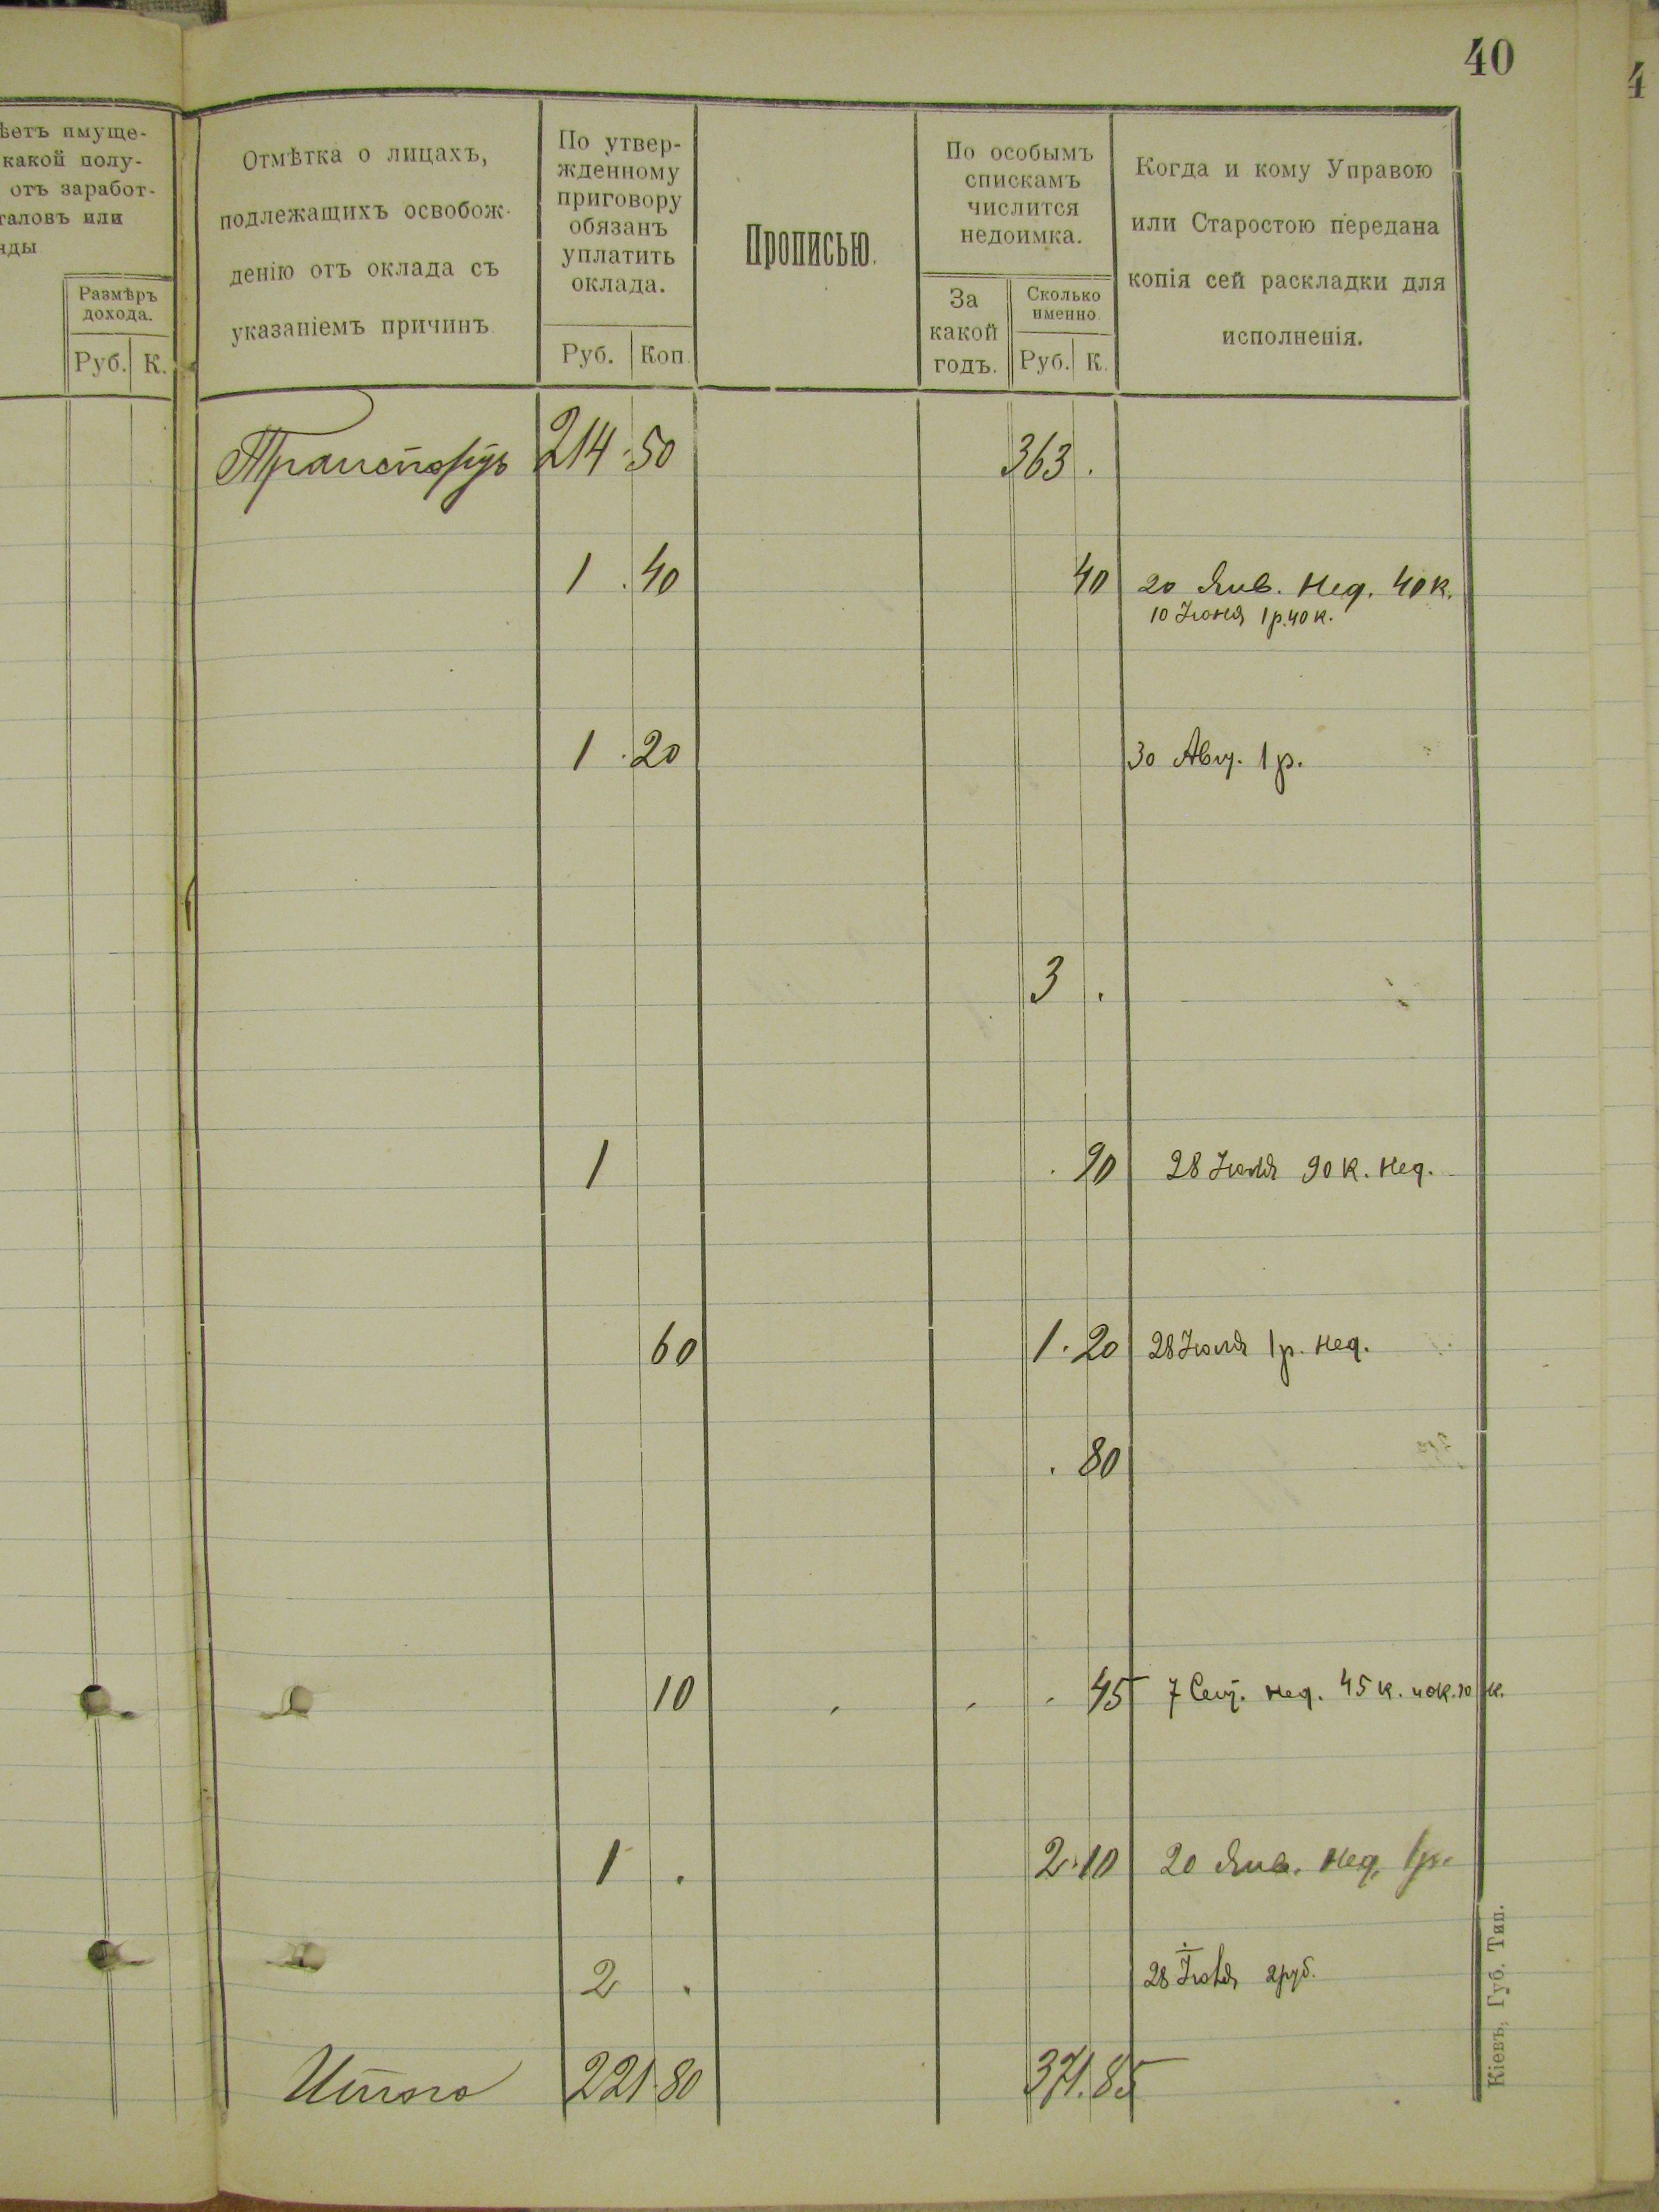 40
4
ѣетъ имуще-
какой полу-
отъ заработ-
таловъ или
нды
Размѣръ
дохода.
Руб. К.
Отмѣтка о лицахъ,
подлежащихъ освобож-
денію отъ оклада съ
указаніемъ причинъ
По утвер-
жденному
приговору
обязанъ
уплатить
оклада.
Руб. Коп.
Прописью.
По особымъ
спискамъ
числится
недоимка.
За
какой
годъ.
Сколько
именно
Руб. К.
Когда и кому Управою
или Старостою передана
копія сей раскладки для
исполненія.
Транспортъ 214 . 50 363 .
1 . 40 40 20 Янв. нед. 40 к.
10 Іюня 1 р. 40 к.
1 . 20 30 Авг. 1 р.
3 .
1 . 90 28 Іюля 90 к. нед.
60 1 . 20 28 Іюля 1 р. нед.
. 80
10 . 45 7 Сент. нед. 45 к. и ок. 10 к.
1 . 2 . 10 20 Янв. нед. 1 р.
2 . 28 Іюля 2 руб.
Итого 221 . 80 371 . 85
Кіевъ, Губ. Тип.